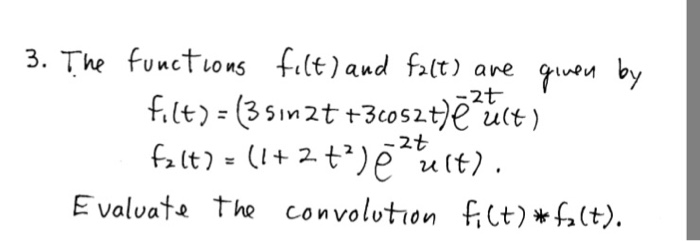 3. The functions f₁(t) and f₂(t) are given by
f₁(t) = (3 sin2t + 3cos2t)e⁻²ᵗu(t)
f₂(t) = (1 + 2t²)e⁻²ᵗu(t).
Evaluate the convolution f₁(t) * f₂(t).